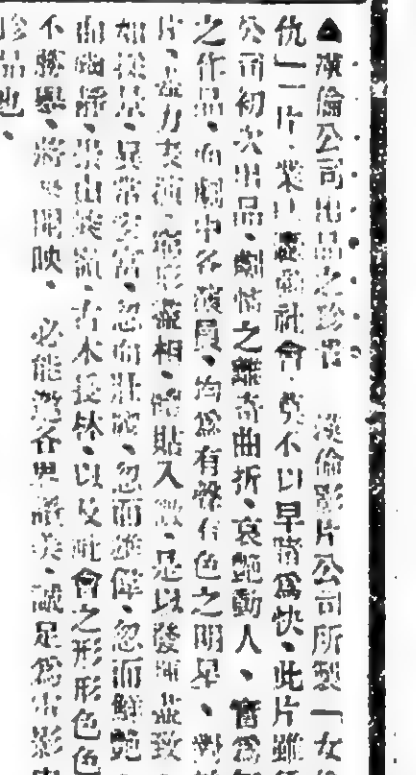 ▲漢倫公司出品之珍 漢倫影片公司所製「女
仇」一片、業已轟動社會、莫不以早睹爲快、此片雖
公司初次出品、劇情之離奇曲折、哀艷動人、實爲
之作品、而劇中各演員、均爲有聲有色之明星、對
片、盡力表演、窮形盡相、體貼入微、足以發揮盡致
如採景、異常 富、忽而壯 、忽而雄偉、忽而鮮艷
而幽靜、崇山峻嶺、古木長林、以及社會之形形色色
不勝舉、將來開映、 必能邀各界讚美、誠足爲 影
珍品也、